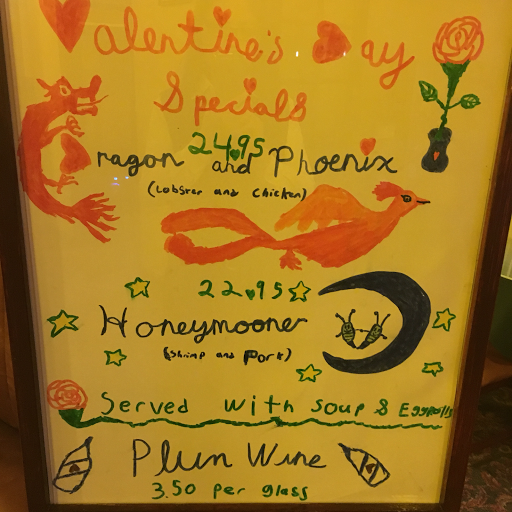 Valentine's Day
Specials
24.95
Dragon and Phoenix
(Lobster and Chicken)
22.95
Honeymooner
(Shrimp and Pork)
Served with soup & Eggrolls
Plum Wine
3.50 per glass